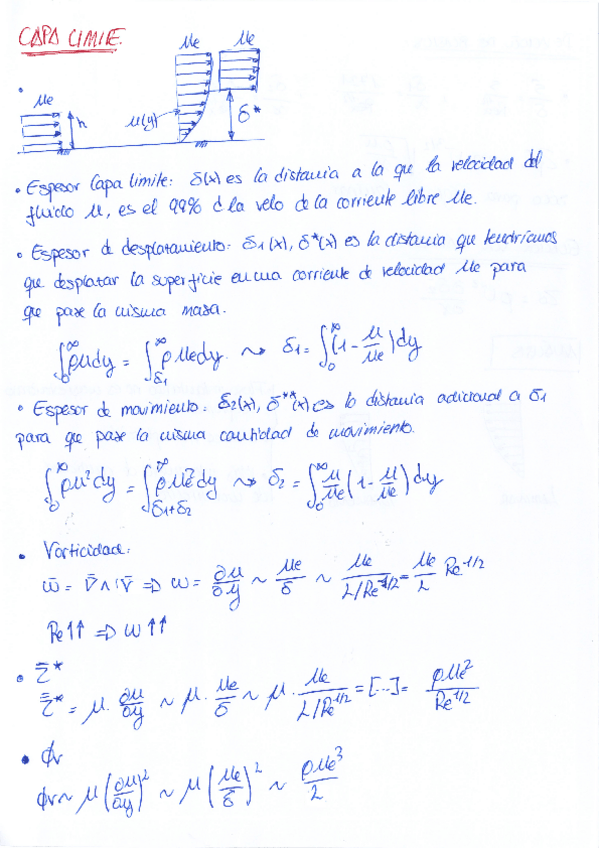 CAPA LIMITE.
Me Me
Me
h
u(y)
δ*
• Espesor Capa limite: δ(x) es la distancia a la que la velocidad del
fluido u, es el 99% d la velo de la corriente libre Ue.
• Espesor de desplazamiento: δ1(x), δ*(x) es la distancia que tendríamos
que desplazar la superficie en una corriente de velocidad Ue para
que pase la misma masa.
∫₀^∞ ρu dy = ∫_δ1^∞ ρUe dy ⇝ δ1 = ∫₀^∞ (1 - u/Ue) dy
• Espesor de movimiento: δ2(x), δ**(x) es la distancia adicional a δ1
para que pase la misma cantidad de movimiento.
∫₀^∞ ρu² dy = ∫_{δ1+δ2}^∞ ρUe² dy ⇝ δ2 = ∫₀^∞ u/Ue (1 - u/Ue) dy
• Vorticidad:
ω̄ = ∇̄ ∧ v̄ ⇒ ω = ∂u/∂y ~ Ue/δ ~ Ue/(L/Re^1/2) = Ue/L Re^1/2
Re↑↑ ⇒ ω↑↑
• τ̿*
τ̿* = μ · ∂u/∂y ~ μ · Ue/δ ~ μ · Ue/(L/Re^1/2) = [...] = ρUe²/Re^1/2
• ϕv
ϕv ~ μ (∂u/∂y)² ~ μ (Ue/δ)² ~ ρUe³/L